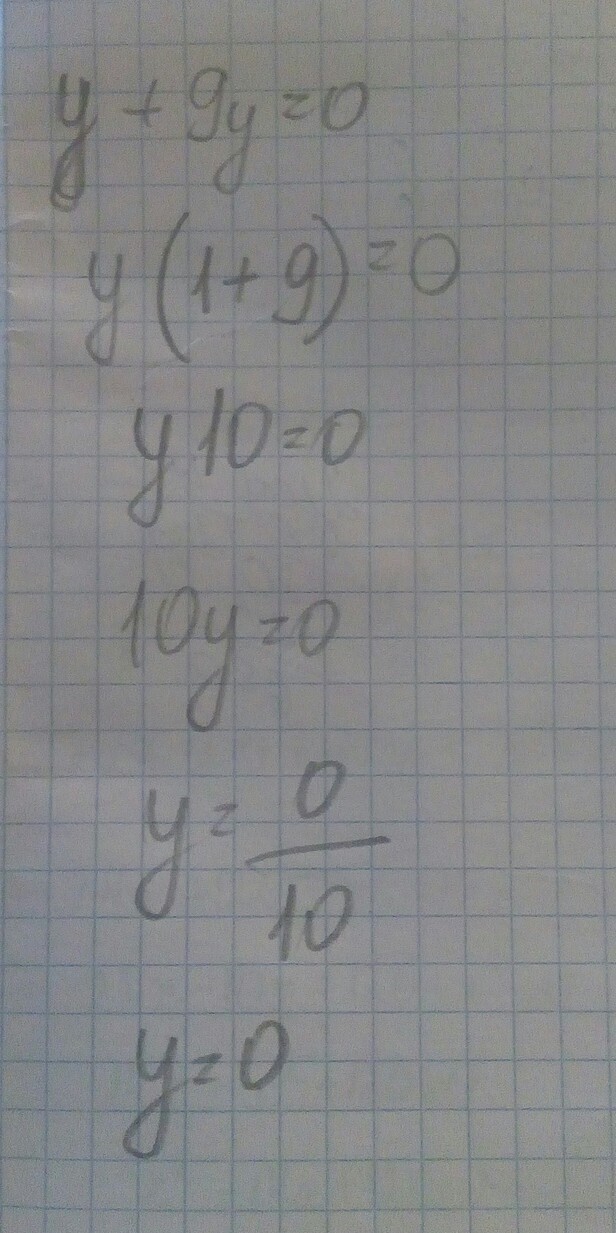 y + 9y = 0
y (1 + 9) = 0
y 10 = 0
10y = 0
y = 0/10
y = 0